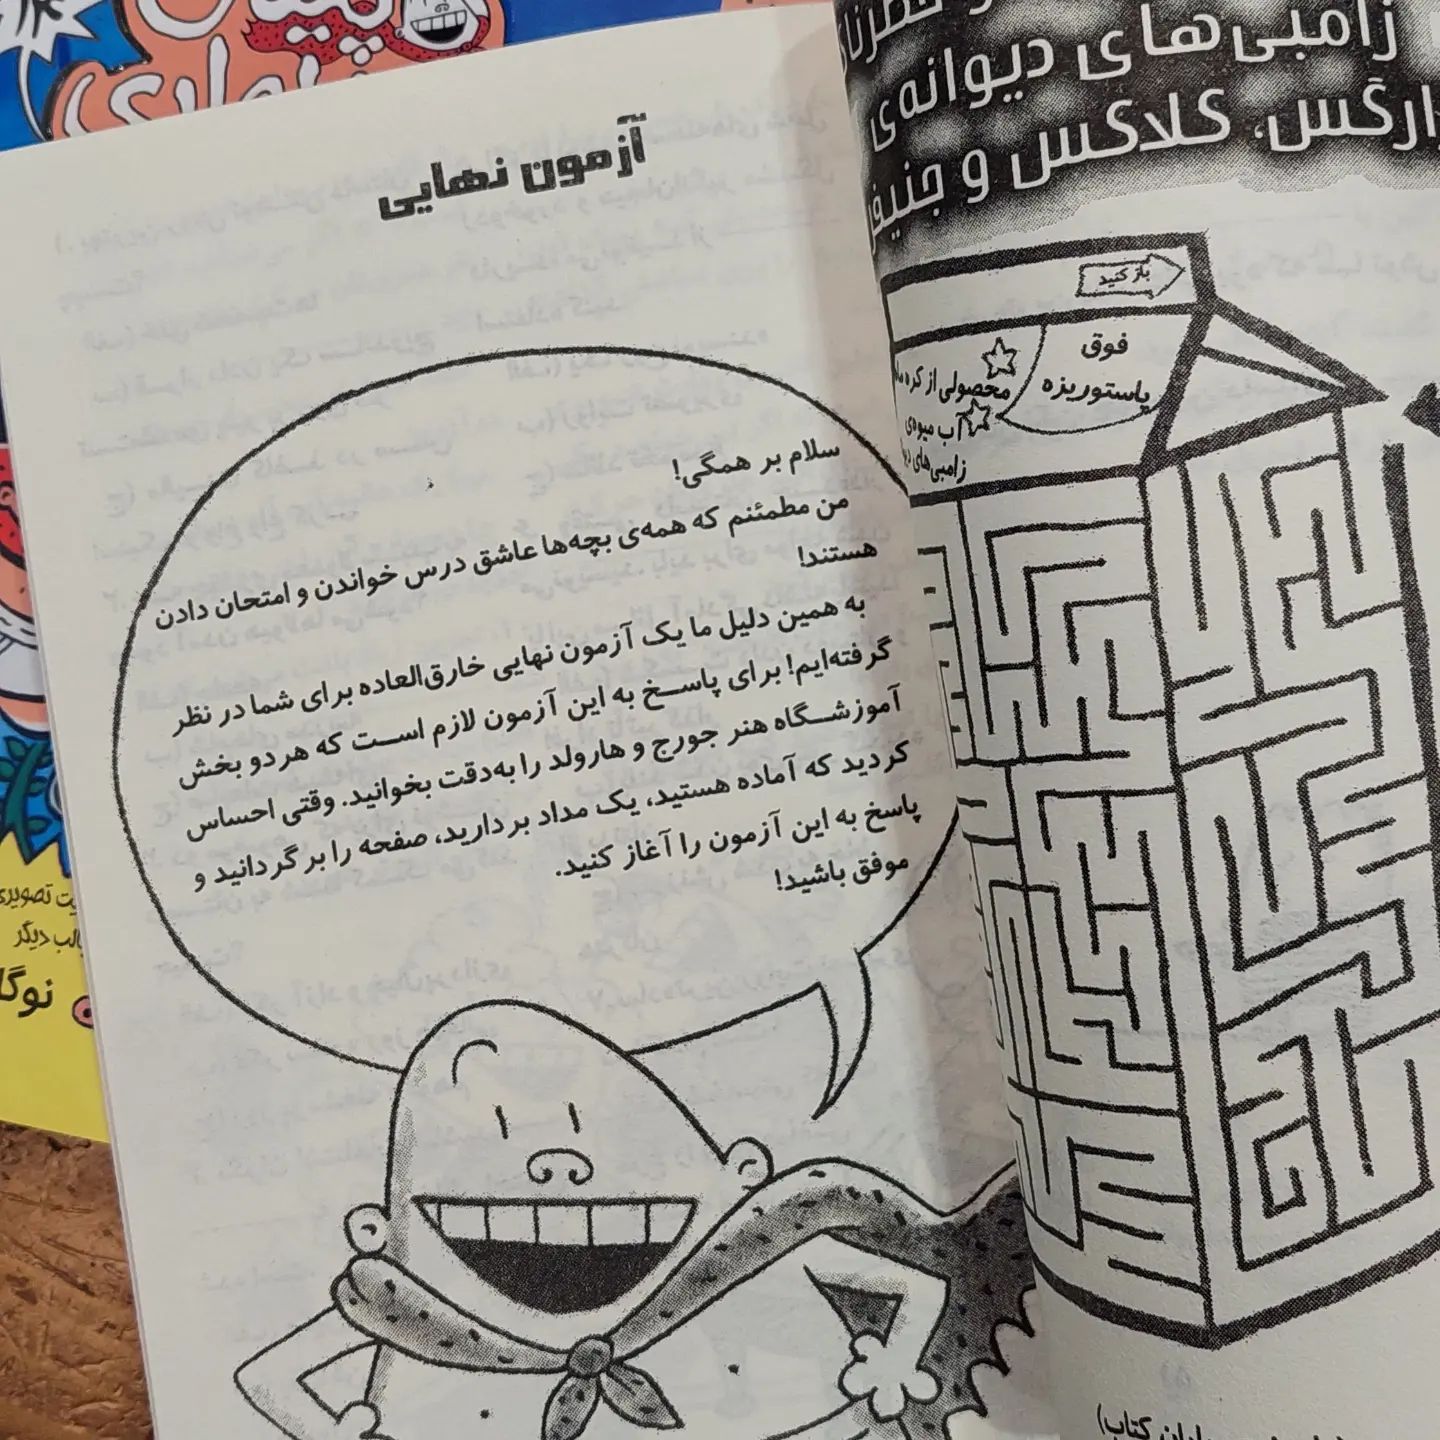 آزمون نهایی
سلام بر همگی!
من مطمئنم که همه‌ی بچه‌ها عاشق درس خواندن و امتحان دادن
هستند!
به همین دلیل ما یک آزمون نهایی خارق‌العاده برای شما در نظر
گرفته‌ایم! برای پاسخ به این آزمون لازم است که هر دو بخش
آموزشگاه هنر جورج و هارولد را به‌دقت بخوانید. وقتی احساس
کردید که آماده هستید، یک مداد بردارید، صفحه را برگردانید و
پاسخ به این آزمون را آغاز کنید.
موفق باشید!
زامبی‌های دیوانه‌ی
کلاکس و
باز کنید
فوق
پاستوریزه
محصولی از کره
آب میوه‌ی
زامبی‌های
کتاب)
تصویری
دیگر